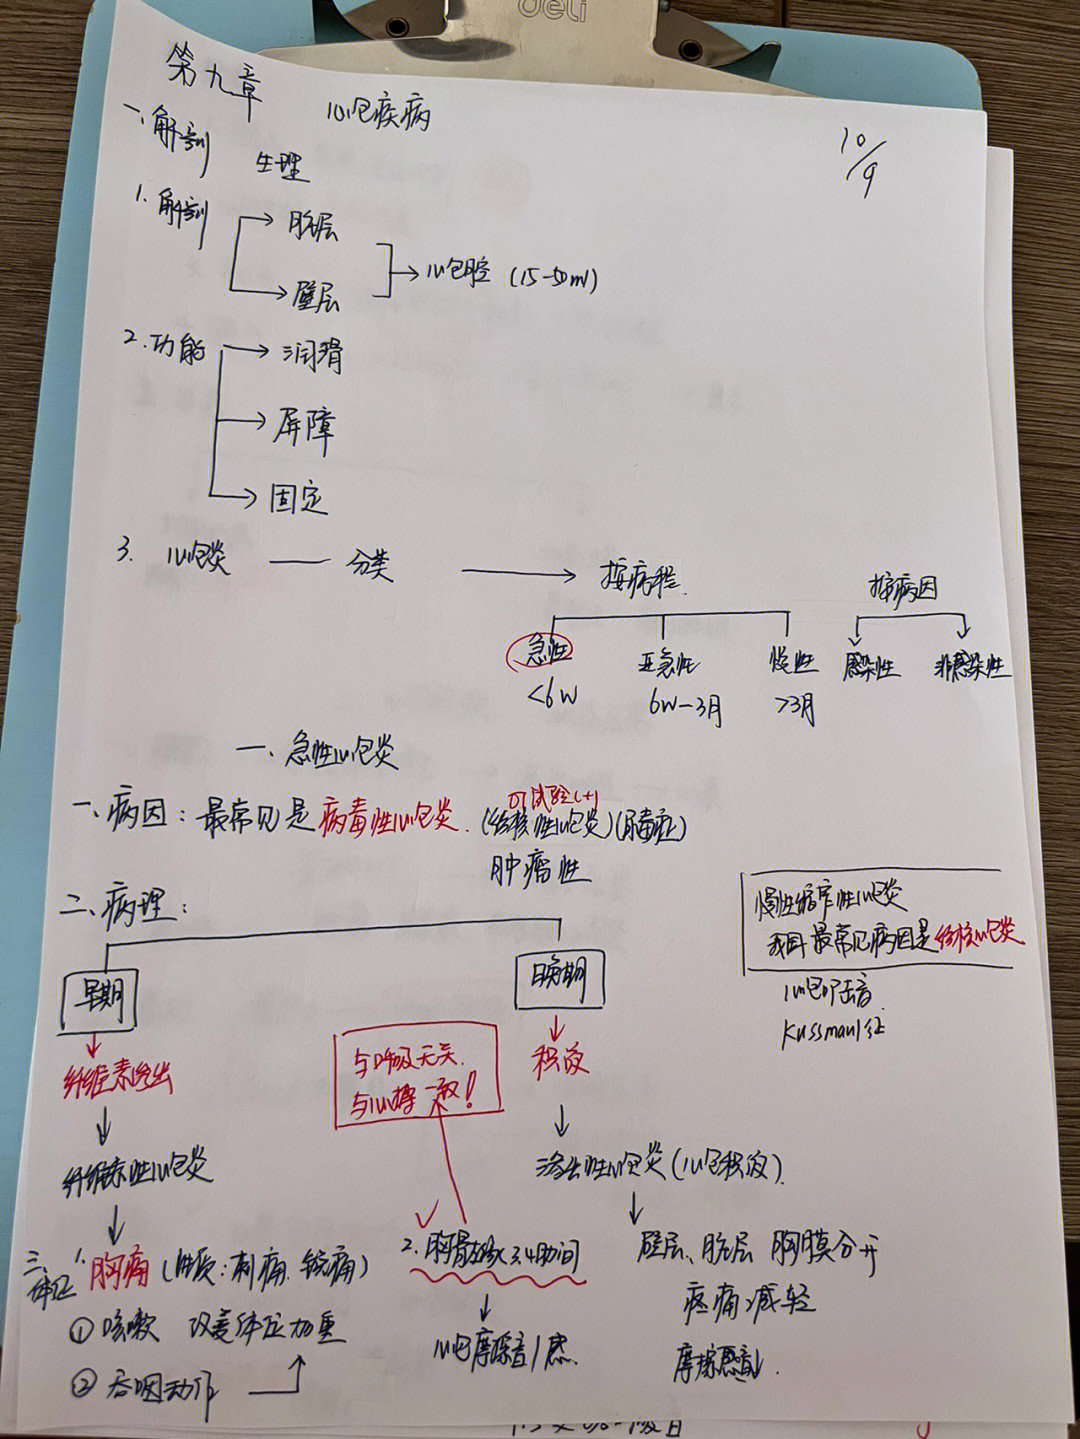 deli
第九章 心包疾病
10/9
一、解剖 生理
1. 解剖
脏层
壁层
心包腔 (15-50ml)
2. 功能
润滑
屏障
固定
3. 心包炎 — 分类 按病程 按病因
急性 亚急性 慢性 感染性 非感染性
<6W 6W-3月 >3月
一、急性心包炎
试验(+)
一、病因：最常见是病毒性心包炎. (结核性心包炎)(尿毒症)
肿瘤性
二、病理：
慢性缩窄性心包炎
我国最常见病因是结核心包炎
心包叩击音
Kussmaul征
早期 晚期
纤维素渗出 积液
与呼吸无关.
与心搏一致!
纤维素性心包炎 渗出性心包炎(心包积液).
三、体征
1. 胸痛(性质:刺痛.锐痛)
2. 胸骨左缘3.4肋间
壁层、脏层 胸膜分开
疼痛减轻
① 咳嗽 改变体位加重
心包摩擦音/感.
② 吞咽动作